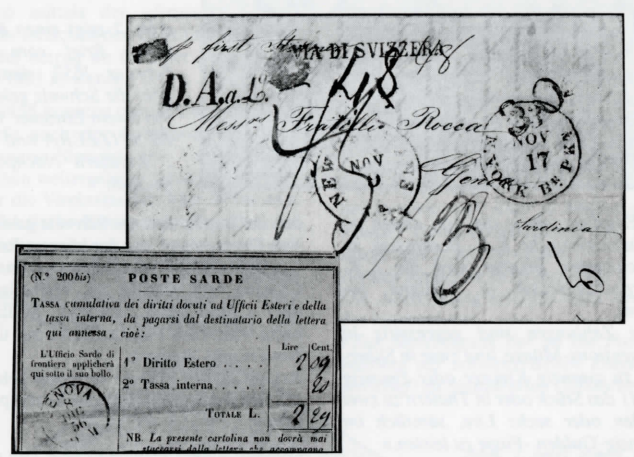 pp first
VIA DI SVIZZERA
D.A.a.L.
48
Messrs Fratelli Rocca
Genoa
Sardinia
NEW
NOV
33
NOV
17
N. YORK Br. PKT
(N.° 200 bis) POSTE SARDE
TASSA cumulativa dei diritti dovuti ad Ufficii Esteri e della
tassa interna, da pagarsi dal destinatario della lettera
qui annessa, cioè:
L'Ufficio Sardo di
frontiera applicherà
qui sotto il suo bollo.
Lire Cent.
1° Diritto Estero . . . . . 2 09
2° Tassa interna . . . . . 20
TOTALE L. 2 29
GENOVA
DIC
56
NB. La presente cartolina non dovrà mai
staccarsi dalla lettera che accompagna